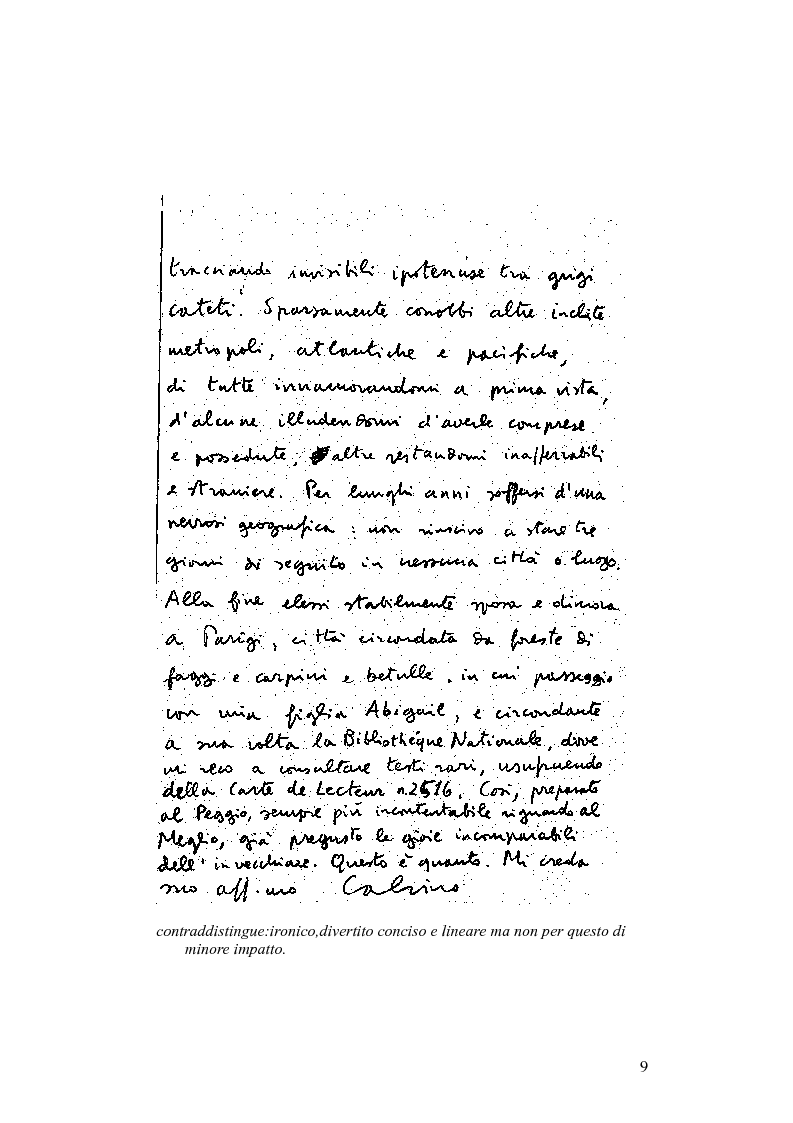 tracciando invisibili ipotenuse tra grigi
cateti. Sparsamente conobbi altre inclite
metropoli, atlantiche e pacifiche,
di tutte innamorandomi a prima vista,
d'alcune illudendomi d'averle comprese
e possedute, altre restandomi inafferrabili
e straniere. Per lunghi anni soffersi d'una
nevrosi geografica: non riuscivo a stare tre
giorni di seguito in nessuna città o luogo.
Alla fine elessi stabilmente sposa e dimora
a Parigi, città circondata da foreste di
faggi e carpini e betulle, in cui passeggio
con mia figlia Abigail, e circondante
a sua volta la Bibliothèque Nationale, dove
mi reco a consultare testi rari, usufruendo
della Carte de Lecteur n.2516. Così, preparato
al Peggio, sempre più incontentabile riguardo al
Meglio, già pregusto le gioie incomparabili
dell'invecchiare. Questo è quanto. Mi creda
suo aff.mo Calvino
contraddistingue:ironico,divertito conciso e lineare ma non per questo di
minore impatto.
9